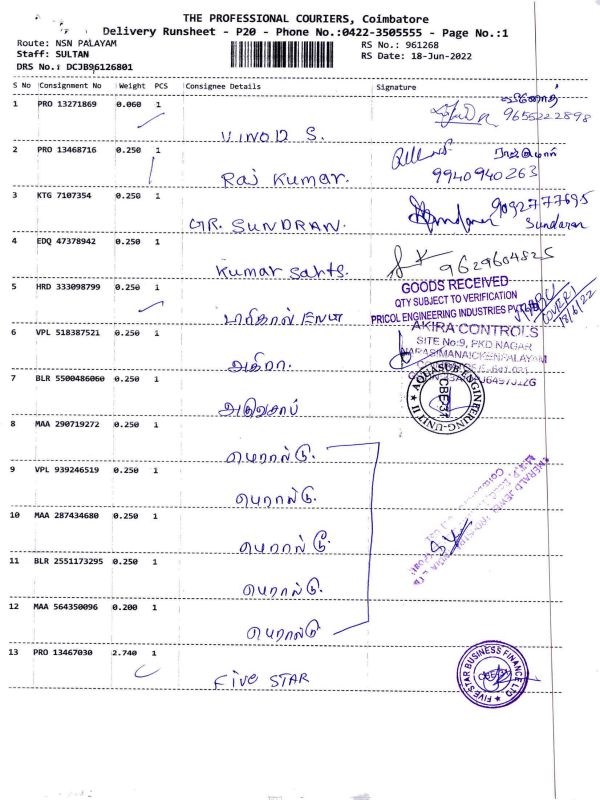 THE PROFESSIONAL COURIERS, Coimbatore
Delivery Runsheet - P20 - Phone No.:0422-3505555 - Page No.:1
Route: NSN PALAYAM
Staff: SULTAN
DRS No.: DCJB96126801
RS No.: 961268
RS Date: 18-Jun-2022
S No Consignment No Weight PCS Consignee Details Signature
1 PRO 13271869 0.060 1
VINOD S.
வினோத்
9655222898
2 PRO 13468716 0.250 1
Raj Kumar.
ராஜ்குமார்
9940940263
3 KTG 7107354 0.250 1
GR. SUNDRAN.
9092777695
Sundaran
4 EDQ 47378942 0.250 1
Kumar Sahts.
9629604825
5 HRD 333098799 0.250 1
GOODS RECEIVED
QTY SUBJECT TO VERIFICATION
PRICOL ENGINEERING INDUSTRIES PVT
18/6/22
6 VPL 518387521 0.250 1
AKIRA CONTROLS
SITE No:9, PKD NAGAR
NARASIMANAICKENPALAYAM
7 BLR 5500486060 0.250 1
AQUASUB ENGINEERING-UNIT II
CBE-31
8 MAA 290719272 0.250 1
எமரால்டு.
9 VPL 939246519 0.250 1
எமரால்டு.
10 MAA 287434680 0.250 1
எமரால்டு.
EMERALD JEWEL
11 BLR 2551173295 0.250 1
எமரால்டு.
12 MAA 564350096 0.200 1
எமரால்டு
13 PRO 13467030 2.740 1
FIVE STAR
FIVE STAR BUSINESS FINANCE LTD